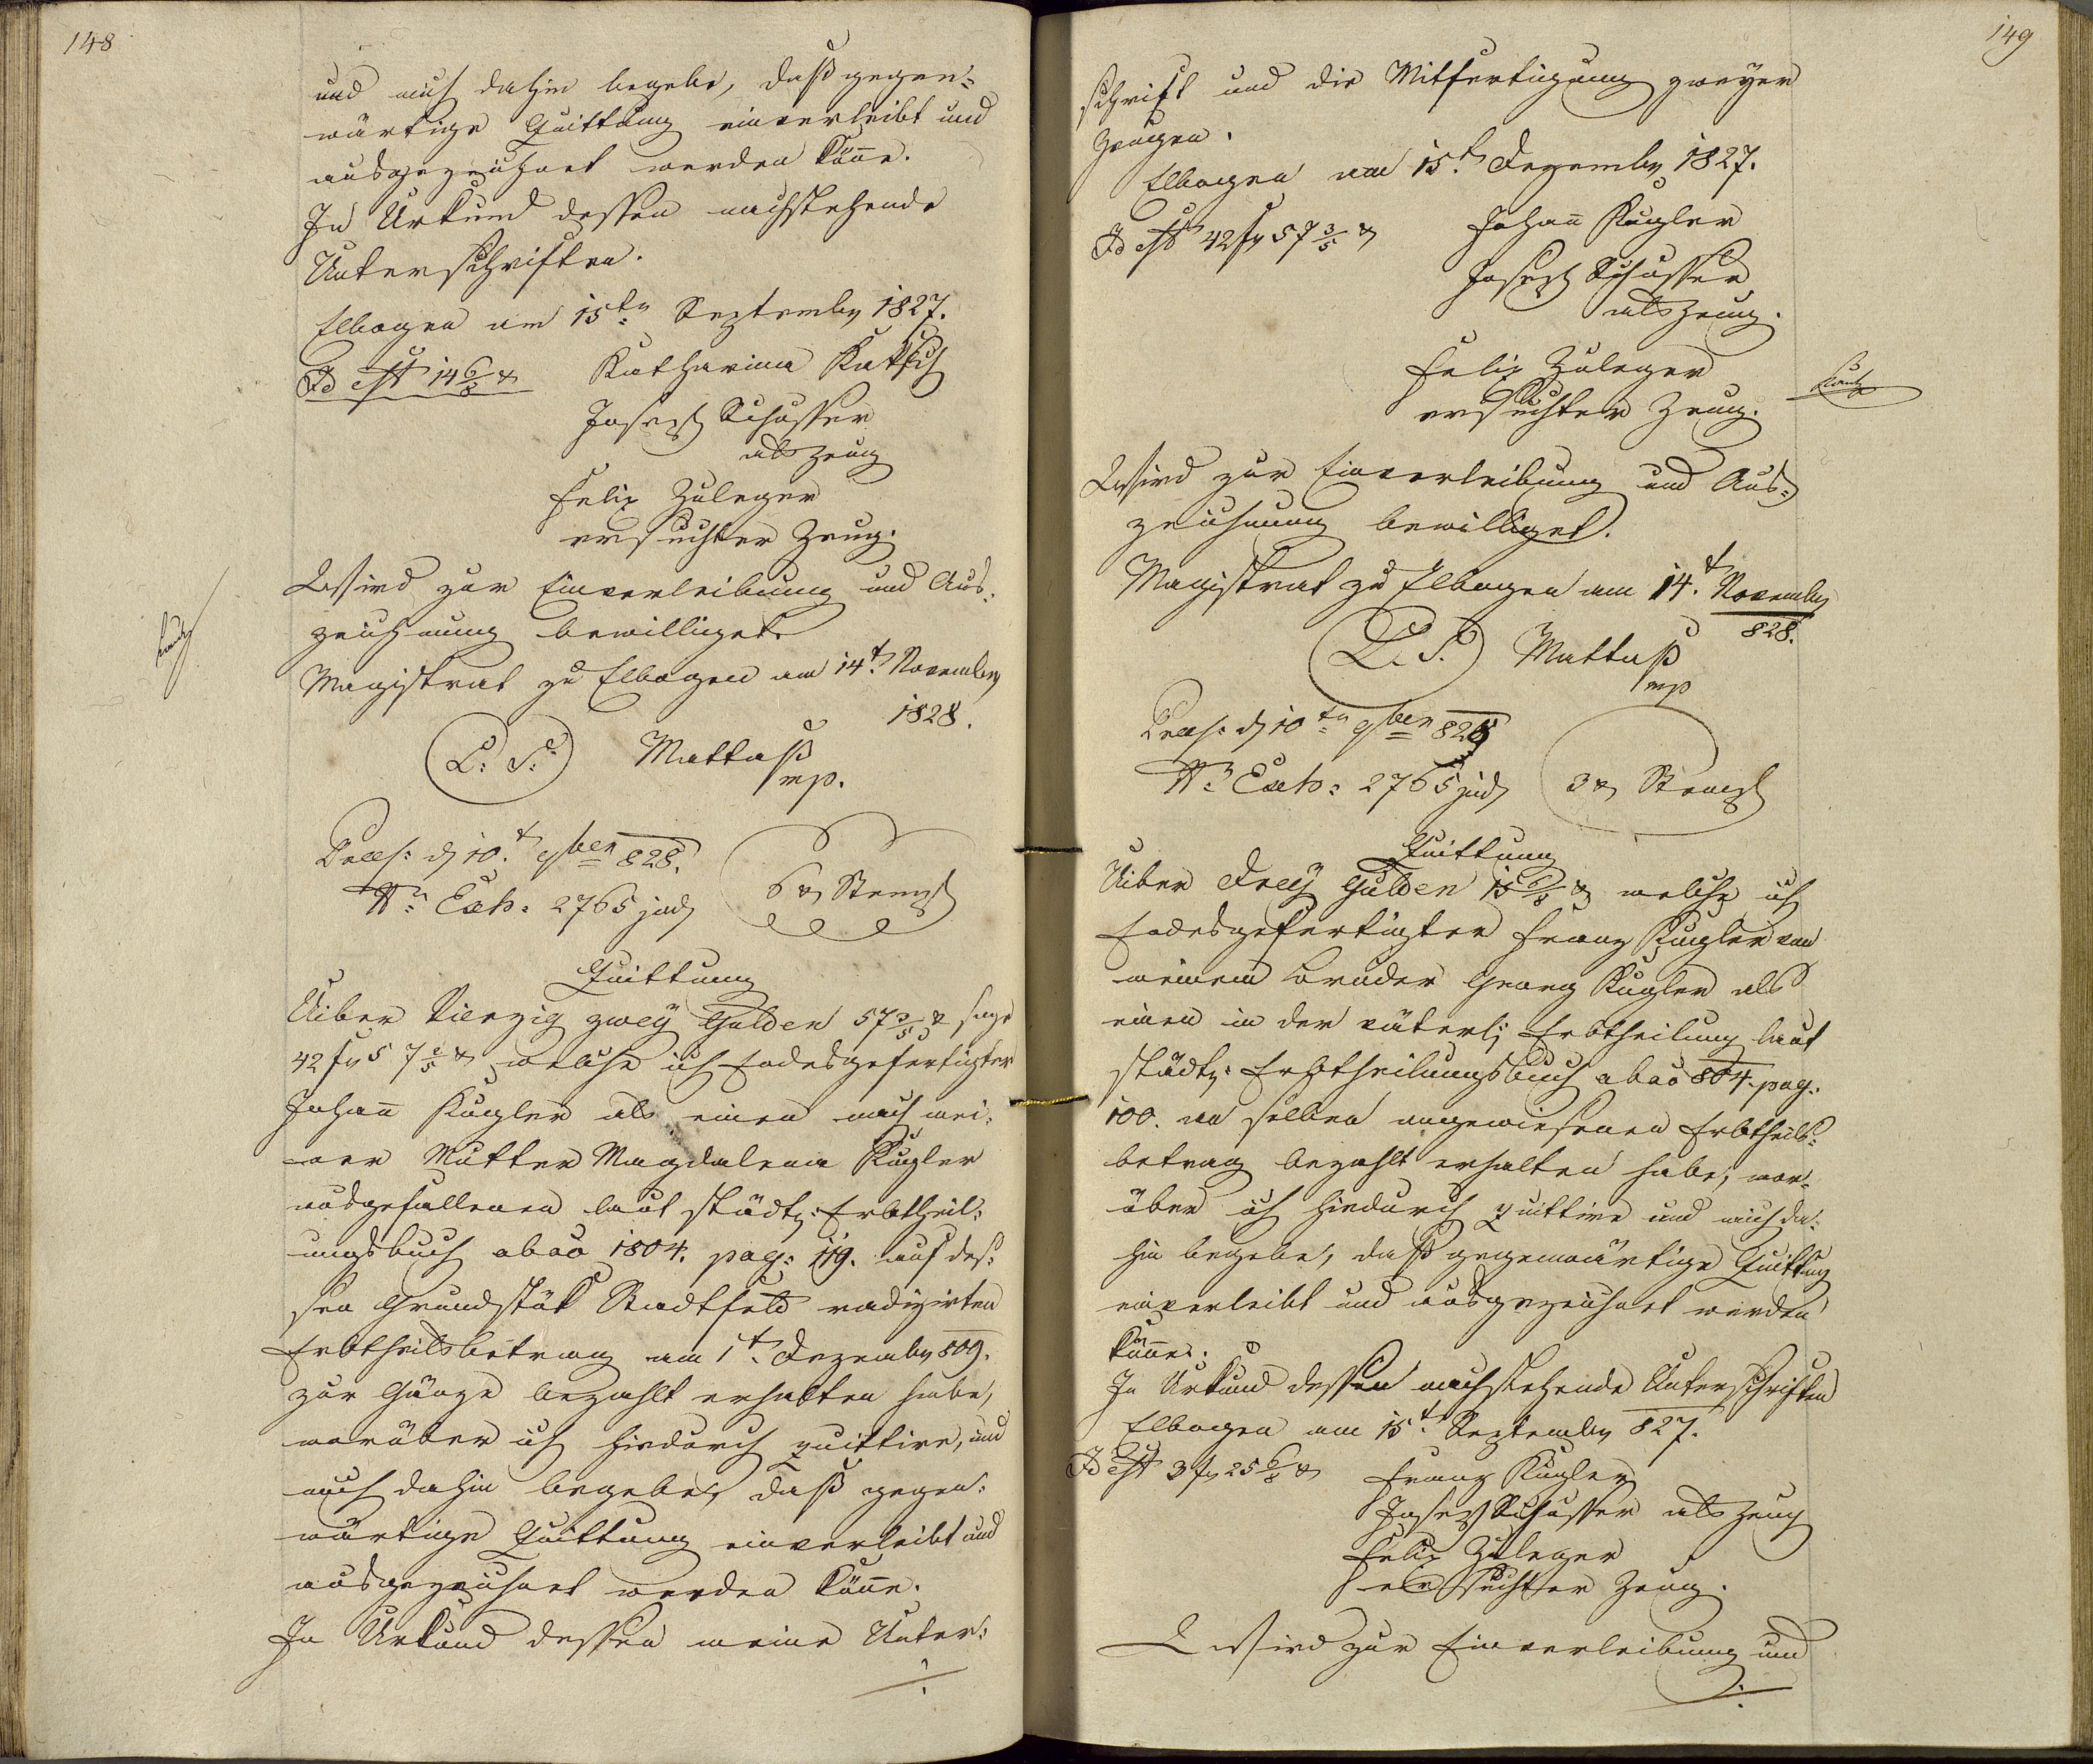 148
und mich dahin begebe, daß gegen=
wärtige Quittung einverleibt und
ausgezeichnet werden könne.
In Urkund dessen nachstehende
Unterschriften.
Elbogen am 15ten September 1827.
Id est 14 6/8 x Katharina
Joseph Schusser
als Zeug
Felix Zuleger
ersuchter Zeug.
Wird zur Einverleibung und Aus=
zeichnung bewilliget.
Magistrat zu Elbogen am 14t. November
1828.
L: S: Mattaß
mp.
Praes: d 10t. 9ber 828.
Nr: Exh: 2765 jud 6 x Stempl
Quittung
Uiber Vierzig zwey Gulden 57 3/5 x sage
42 fr 57 3/5 x welche ich Endesgefertigter
Johann Kugler als einen nach mei=
ner Mutter Magdalena Kugler
ausgefallenen laut städt: Erbtheil=
ungsbuch ab ao 1804. pag: 119. auf des=
sen Grundstük Stadtfeld radizirten
Erbtheilsbetrag am 1t. Dezember 809.
zur Gänze bezahlt erhalten habe,
worüber ich hiedurch quittire, und
mich dahin begebe, daß gegen=
wärtige Quittung einverleibt und
ausgezeichnet werden könne.
In Urkund dessen meine Unter=
149
schrift und die Mitfertigung zweyer
Zeugen.
Elbogen am 15t. Dezember 1827.
Id est 42 fr 57 3/5 x Johann Kugler
Joseph Schusser
als Zeug.
Felix Zuleger
ersuchter Zeug.
Wird zur Einverleibung und Aus=
zeichnung bewilliget.
Magistrat zu Elbogen am 14t. November
828.
L. S. Mattaß
mp
Praes: d 10tn 9ber 828
Nr: Exh: 2765 jud 3 x Stempl
Quittung
Uiber Drey Gulden 15 6/8 x welche ich
Endesgefertigter Franz Kugler von
meinem Bruder Georg Kugler als
einen in der väterl: Erbtheilung laut
städt: Erbtheilungsbuch ab ao 804. pag.
100. an selben angewiesenen Erbtheils=
betrag bezahlt erhalten habe, wor=
über ich hiedurch quittire und mich da=
hin begebe, daß gegenwärtige Quittung
einverleibt und ausgezeichnet werden
könne.
In Urkund dessen nachstehende Unterschriften
Elbogen am 15t. September 827.
Id est 3 fr 25 6/8 x Franz Kugler
Joseph Schusser als Zeug
Felix Zuleger
ersuchter Zeug.
Wird zur Einverleibung und